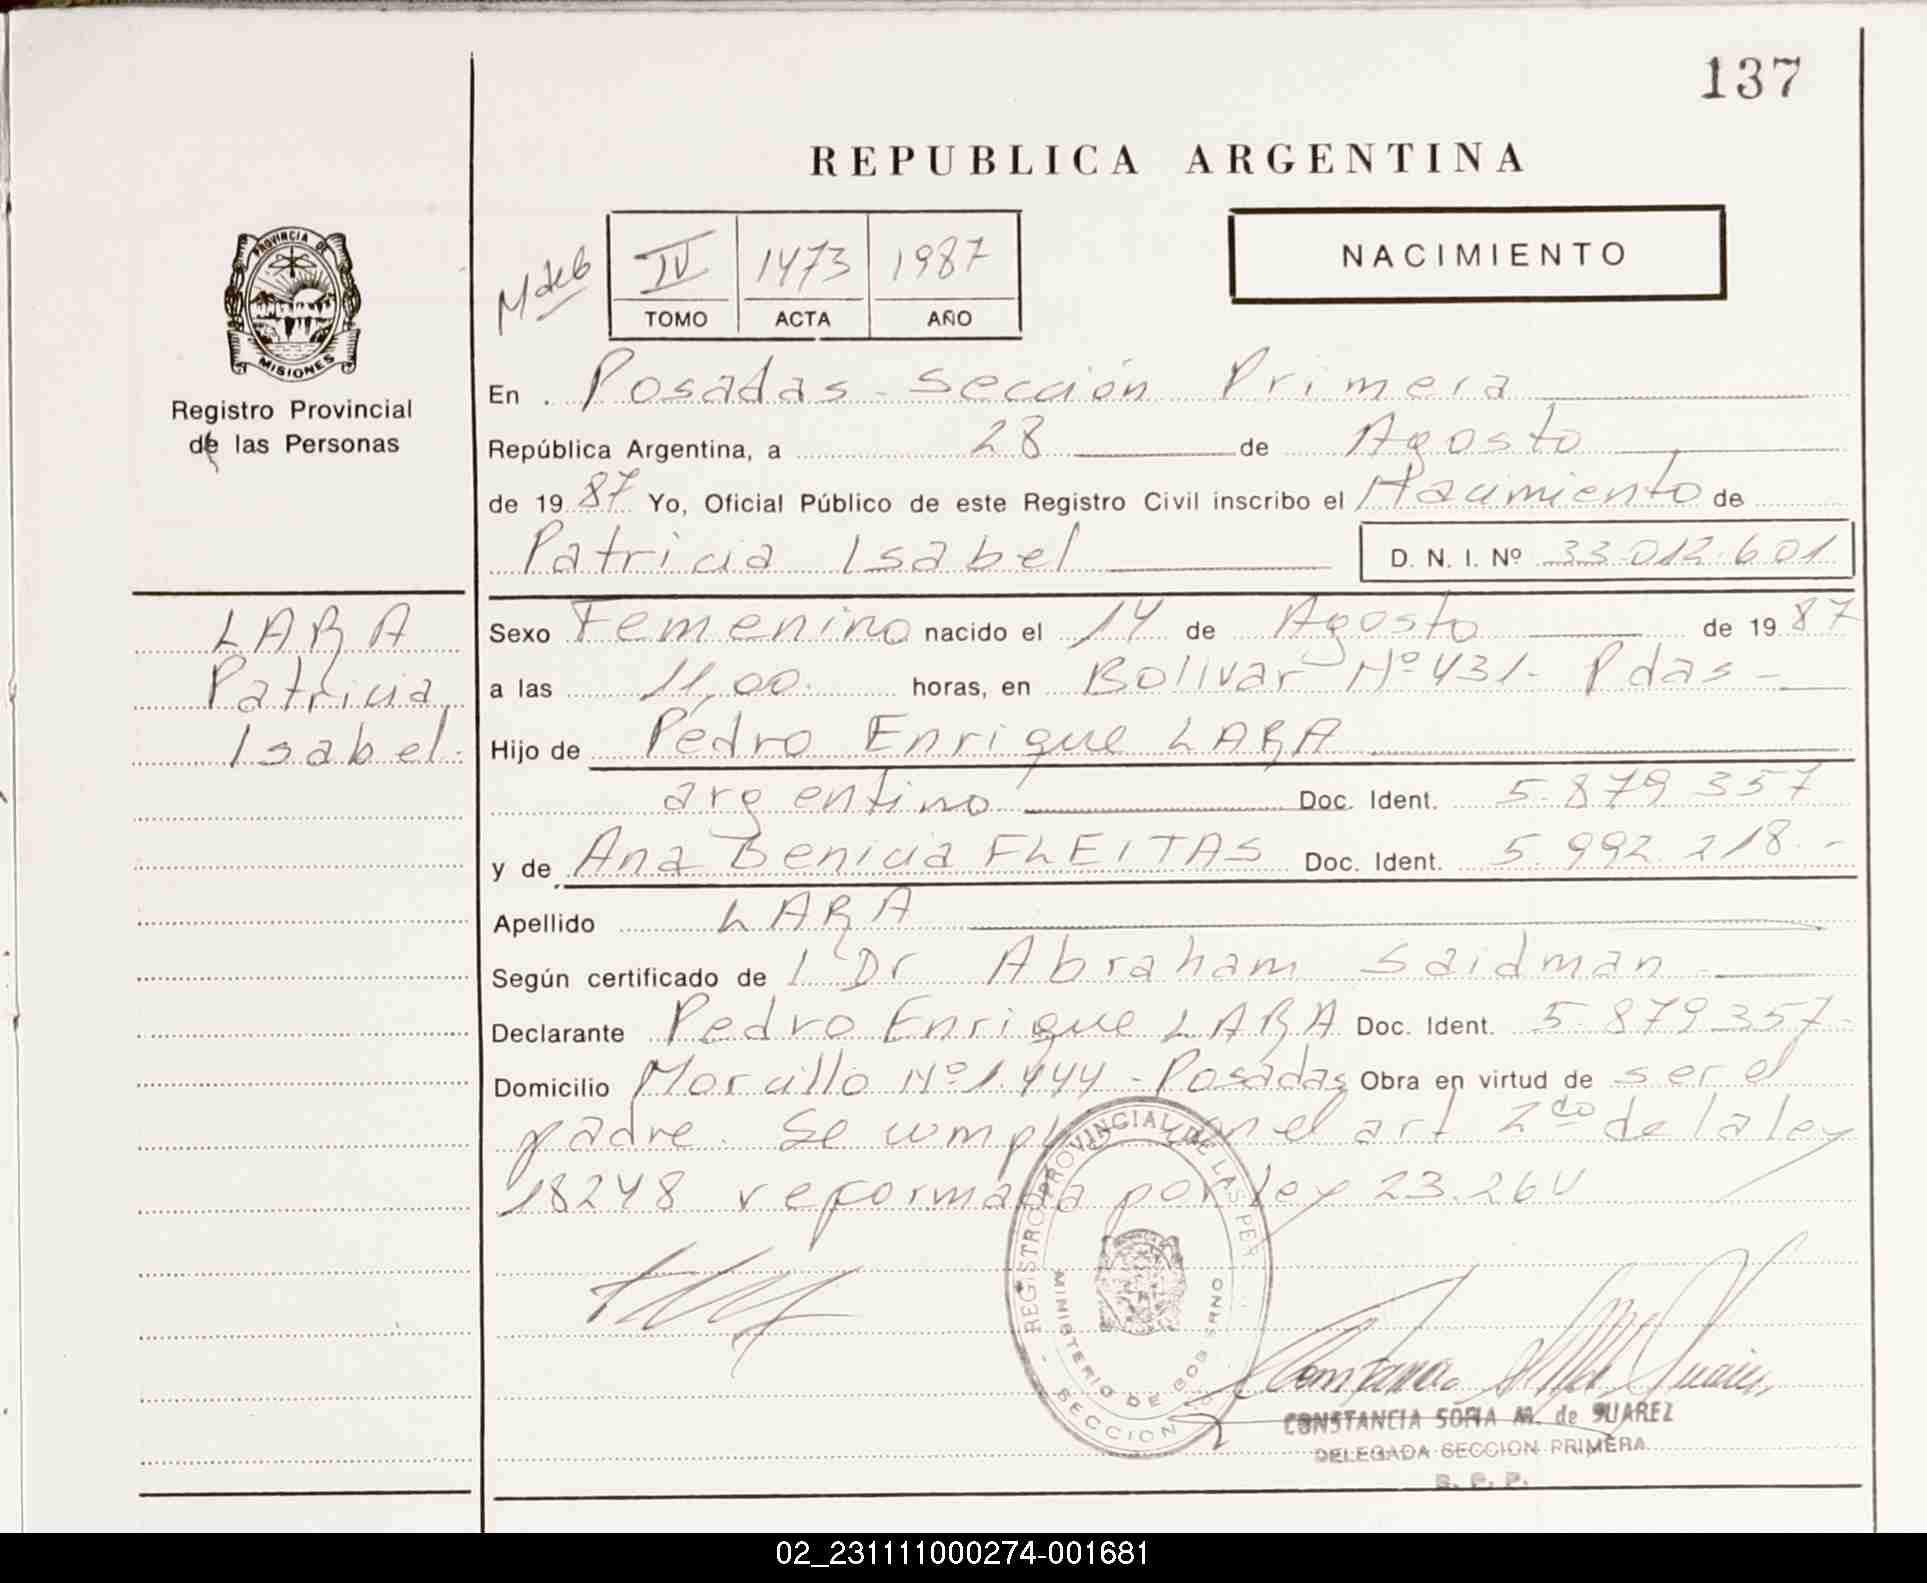 137
REPUBLICA ARGENTINA
PROVINCIA DE
MISIONES
Registro Provincial
de las Personas
IV 1473 1987
TOMO ACTA AÑO
NACIMIENTO
En Posadas - Sección Primera
República Argentina, a 28 de Agosto
de 1987 Yo, Oficial Público de este Registro Civil inscribo el Nacimiento de
Patricia Isabel D. N. I. Nº 33.012.601
LARA
Patricia
Isabel.
Sexo Femenino nacido el 14 de Agosto de 1987
a las 11,00 horas, en Bolivar Nº 431 - Pdas -
Hijo de Pedro Enrique LARA
argentino Doc. Ident. 5.879.357
y de Ana Benicia FLEITAS Doc. Ident. 5.992.218.-
Apellido LARA
Según certificado de l Dr Abraham Saidman
Declarante Pedro Enrique LARA Doc. Ident. 5.879.357-
Domicilio Morcillo Nº 1.444 - Posadas Obra en virtud de ser el
padre. Se cumple con el art 2do de la ley
18248 reformada por ley 23.264
REGISTRO PROVINCIAL DE LAS PER
MINISTERIO DE GOBIERNO
SECCION
CONSTANCIA SOFIA M. de SUAREZ
DELEGADA SECCION PRIMERA
R. P. P.
02_231111000274-001681